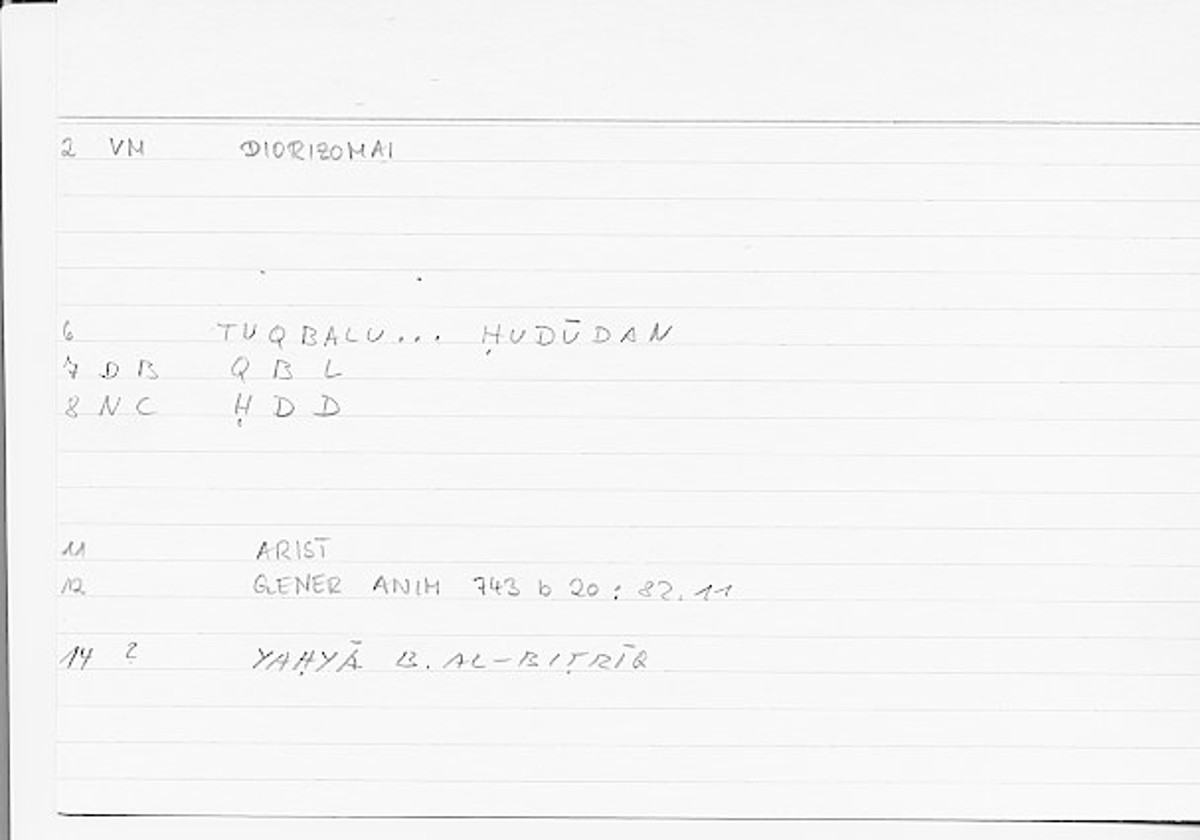 2 VM DIORIZOMAI
6 TUQBALU... ḤUDŪDAN
7 D B Q B L
8 N C Ḥ D D
11 ARIST
12 GENER ANIM 743 b 20 : 82.11
14 2 YAḤYĀ B. AL-BIṬRĪQ